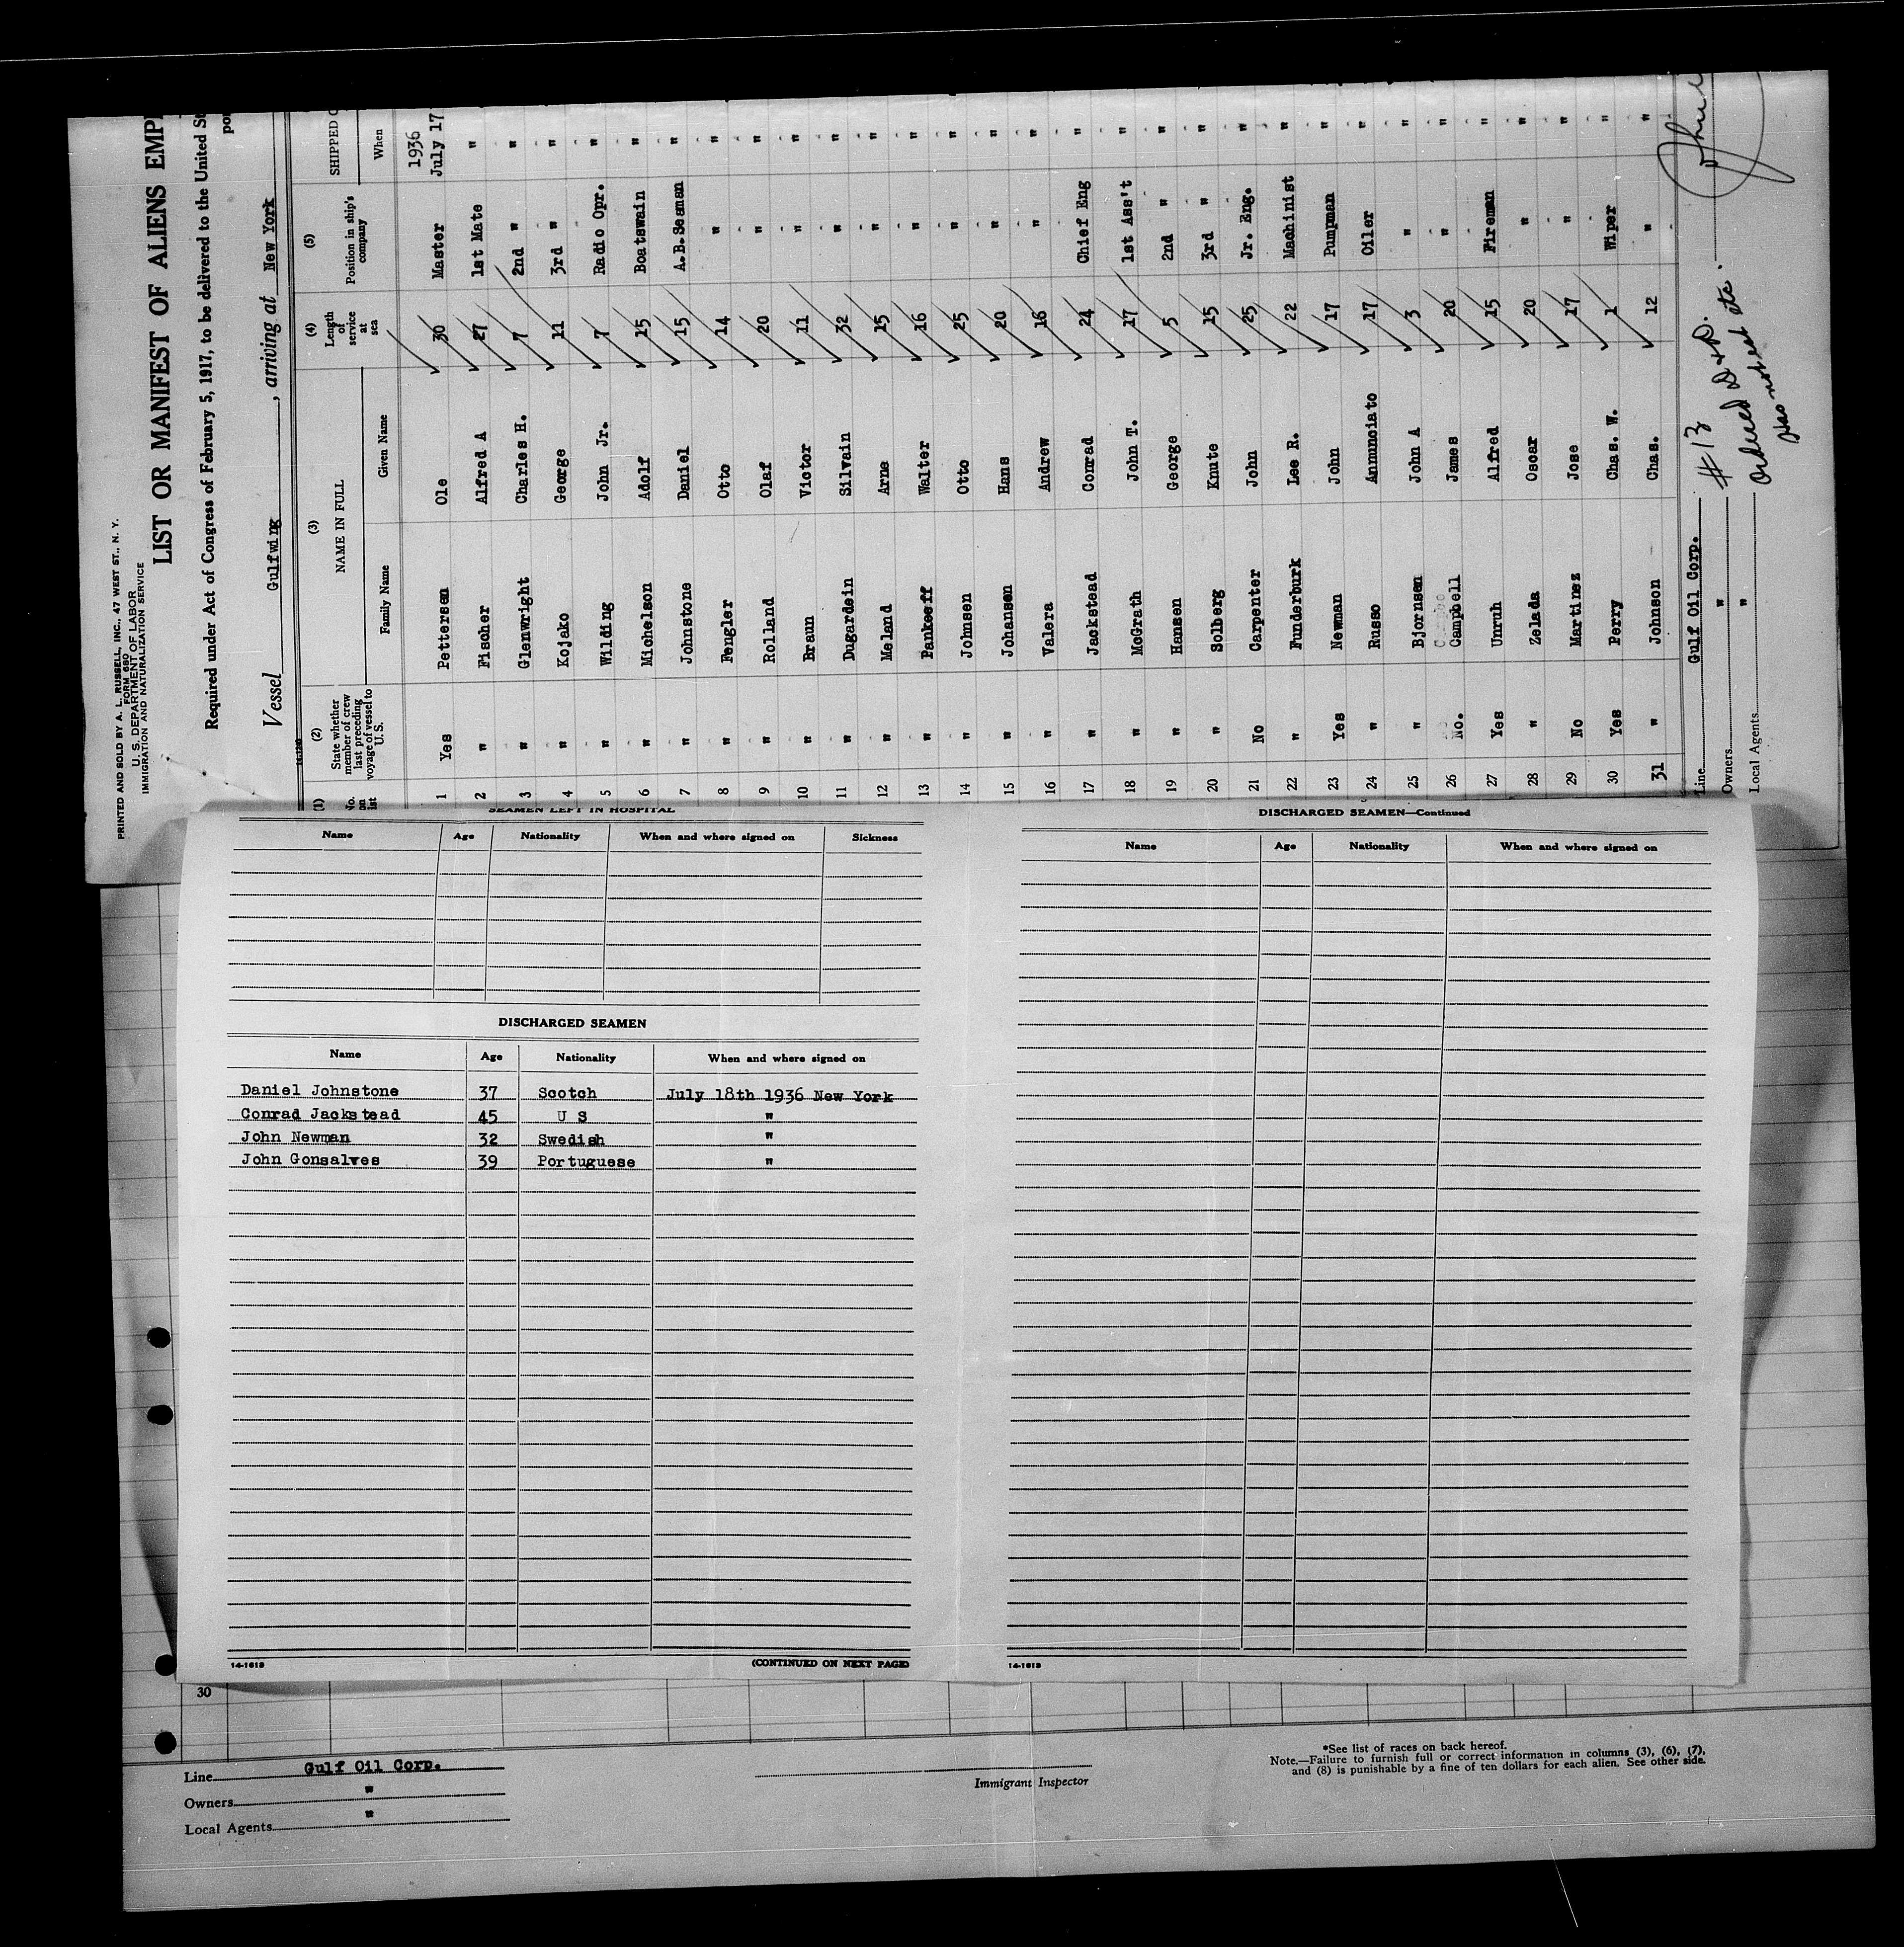 PRINTED AND SOLD BY A. L. RUSSELL, INC., 47 WEST ST., N. Y.
FORM 680
U. S. DEPARTMENT OF LABOR
IMMIGRATION AND NATURALIZATION SERVICE
LIST OR MANIFEST OF ALIENS EMPL
Required under Act of Congress of February 5, 1917, to be delivered to the United St
por
Vessel Gulfwing, arriving at New York
(1) (2) (3) (4) (5) SHIPPED O
No. on list State whether member of crew last preceding voyage of vessel to U.S. NAME IN FULL Length of service at sea Position in ship's company When
Family Name Given Name
1936
1 Yes Pettersen Ole 30 Master July 17
2 " Fischer Alfred A 27 1st Mate "
3 " Glenwright Charles H. 7 2nd " "
4 " Kojako George 11 3rd " "
5 " Wilding John Jr. 7 Radio Opr. "
6 " Michelson Adolf 15 Boatswain "
7 " Johnstone Daniel 15 A.B.Seaman "
8 " Fengler Otto 14 " "
9 " Rolland Olaf 20 " "
10 " Braun Victor 11 " "
11 " Dugardein Silvain 32 " "
12 " Meland Arne 15 " "
13 " Pankeeff Walter 16 " "
14 " Johnsen Otto 25 " "
15 " Johansen Hans 20 " "
16 " Valera Andrew 16 " "
17 " Jackstead Conrad 24 Chief Eng "
18 " McGrath John T. 17 1st Ass't "
19 " Hansen George 5 2nd " "
20 " Solberg Knute 15 3rd " "
21 No Carpenter John 25 Jr. Eng. "
22 " Funderburk Lee R. 22 Machinist "
23 Yes Newman John 17 Pumpman "
24 " Russo Annunciato 17 Oiler "
25 " Bjornsen John A 3 " "
26 No. Campbell James 20 " "
27 Yes Unruh Alfred 15 Fireman "
28 " Zelada Oscar 20 " "
29 No Martinez Jose 17 " "
30 Yes Perry Chas. W. 1 Wiper "
31 " Johnson Chas. 12 " "
Line Gulf Oil Corp.
Owners "
Local Agents "
#13
Ordered D + D.
SEAMEN LEFT IN HOSPITAL
Name Age Nationality When and where signed on Sickness
DISCHARGED SEAMEN
Name Age Nationality When and where signed on
Daniel Johnstone 37 Scotch July 18th 1936 New York
Conrad Jackstead 45 U S "
John Newman 32 Swedish "
John Gonsalves 39 Portuguese "
14-1613
(CONTINUED ON NEXT PAGE)
DISCHARGED SEAMEN—Continued
Name Age Nationality When and where signed on
14-1613
30
Line Gulf Oil Corp.
Owners "
Local Agents "
Immigrant Inspector
*See list of races on back hereof.
Note.—Failure to furnish full or correct information in columns (3), (6), (7),
and (8) is punishable by a fine of ten dollars for each alien. See other side.